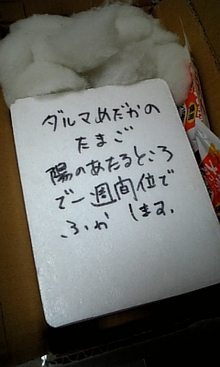 ダルマめだかの
たまご
陽のあたるところ
で一週間位で
ふか します。